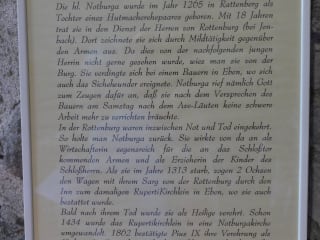 Die hl. Notburga wurde im Jahr 1265 in Rattenberg als
Tochter eines Hutmacherehepaares geboren. Mit 18 Jahren
trat sie in den Dienst der Herren von Rottenburg (bei Jen-
bach). Dort zeichnete sie sich durch Mildtätigkeit gegenüber
den Armen aus. Da dies von der nachfolgenden jungen
Herrin nicht gerne gesehen wurde, wies man sie von der
Burg. Sie verdingte sich bei einem Bauern in Eben, wo sich
auch das Sichelwunder ereignete. Notburga rief nämlich Gott
zum Zeugen dafür an, daß sie nach dem Versprechen des
Bauern am Samstag nach dem Ave-Läuten keine schwere
Arbeit mehr zu verrichten bräuchte.
In der Rottenburg waren inzwischen Not und Tod eingekehrt.
So holte man Notburga zurück. Sie wirkte von da an als
Wirtschafterin segensreich für die an das Schloßtor
kommenden Armen und als Erzieherin der Kinder des
Schloßherrn. Als sie im Jahre 1313 starb, zogen 2 Ochsen
den Wagen mit ihrem Sarg von der Rottenburg durch den
Inn zum damaligen RupertiKirchlein in Eben, wo sie auch
bestattet wurde.
Bald nach ihrem Tod wurde sie als Heilige verehrt. Schon
1434 wurde das RupertiKirchlein in eine Notburgakirche
umgewandelt. 1862 bestätigte Pius IX ihre Verehrung als